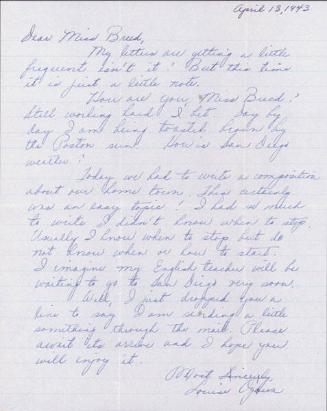 April 13, 1943
Dear Miss Breed,
My letters are getting a little
frequent isn't it? But this time
it is just a little note.
How are you, Miss Breed?
Still working hard I bet. Day by
day I am being toasted brown by
the Poston sun. How is San Diego
weather?
Today we had to write a composition
about our home town. This certainly
was an easy topic! I had so much
to write I didn't know when to stop.
Usually I know when to stop but do
not know when or how to start.
I imagine my English teacher will be
waiting to go to San Diego very soon.
Well, I just dropped you a
line to say I am sending a little
something through the mail. Please
await its arrival and I hope you
will enjoy it.
Most Sincerely,
Louise Ogawa